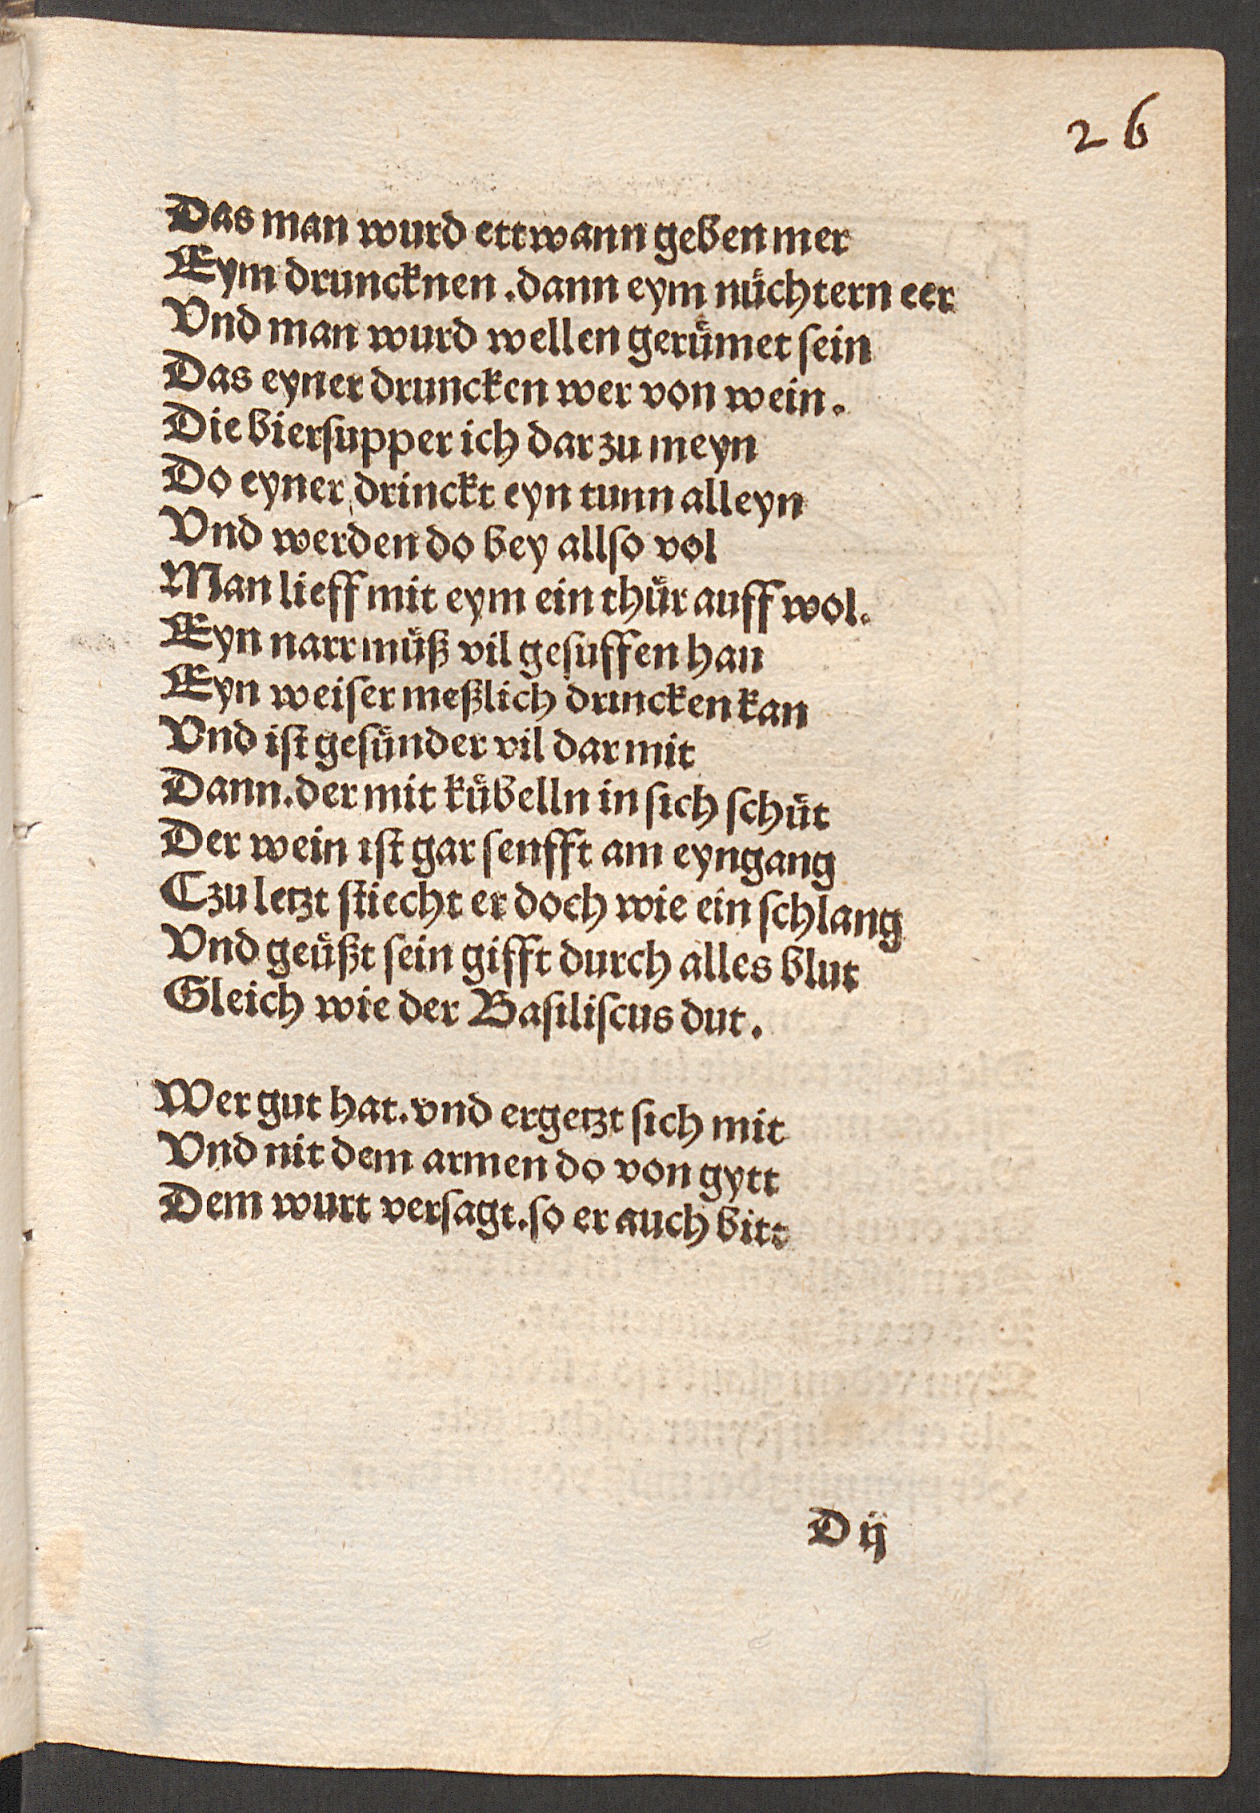 26
Das man wurd ettwann geben mer
Eym druncknen .dann eym nüchtern eer
Vnd man wurd wellen gerümet sein
Das eyner druncken wer von wein.
Die biersupper ich dar zu meyn
Do eyner drinckt eyn tunn alleyn
Vnd werden do bey allso vol
Man lieff mit eym ein thür auff wol.
Eyn narr müß vil gesuffen han
Eyn weiser meßlich drincken kan
Vnd ist gesünder vil dar mit
Dann.der mit kübelln in sich schüt
Der wein ist gar senfft am eyngang
Czu letzt stiecht er doch wie ein schlang
Vnd geüßt sein gifft durch alles blut
Gleich wie der Basiliscus dut.
Wer gut hat.vnd ergetzt sich mit
Vnd nit dem armen do von gytt
Dem wurt versagt.so er auch bitt
D ij